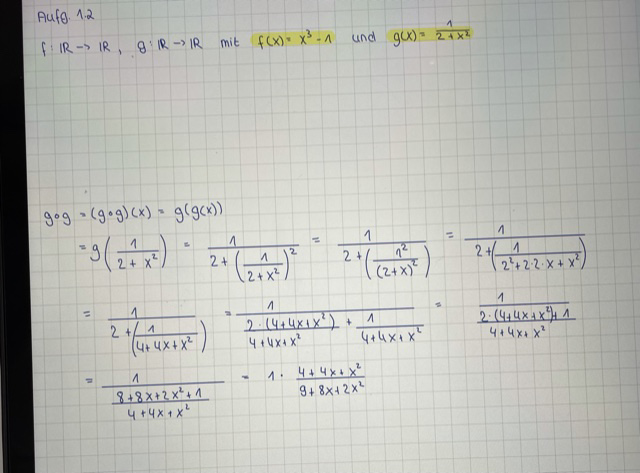 Aufg. 1.2
f: ℝ → ℝ, g: ℝ → ℝ mit f(x) = x³ - 1 und g(x) = 1/(2 + x²)
g∘g = (g∘g)(x) = g(g(x))
= g(1/(2 + x²)) = 1/(2 + (1/(2 + x²))²) = 1/(2 + (1²/(2 + x)²)) = 1/(2 + (1/(2² + 2·2·x + x²)))
= 1/(2 + (1/(4 + 4x + x²))) = 1/((2·(4 + 4x + x²))/(4 + 4x + x²) + 1/(4 + 4x + x²)) = 1/((2·(4 + 4x + x²) + 1)/(4 + 4x + x²))
= 1/((8 + 8x + 2x² + 1)/(4 + 4x + x²)) = 1 · (4 + 4x + x²)/(9 + 8x + 2x²)